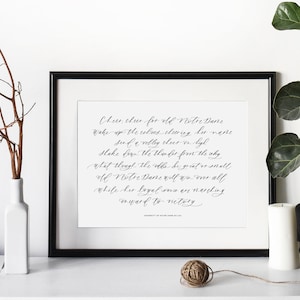 Cheer, cheer for old Notre Dame
Wake up the echoes cheering her name
Send a volley cheer on high
Shake down the thunder from the sky
What though the odds be great or small
Old Notre Dame will win over all
While her loyal sons are marching
onward to victory